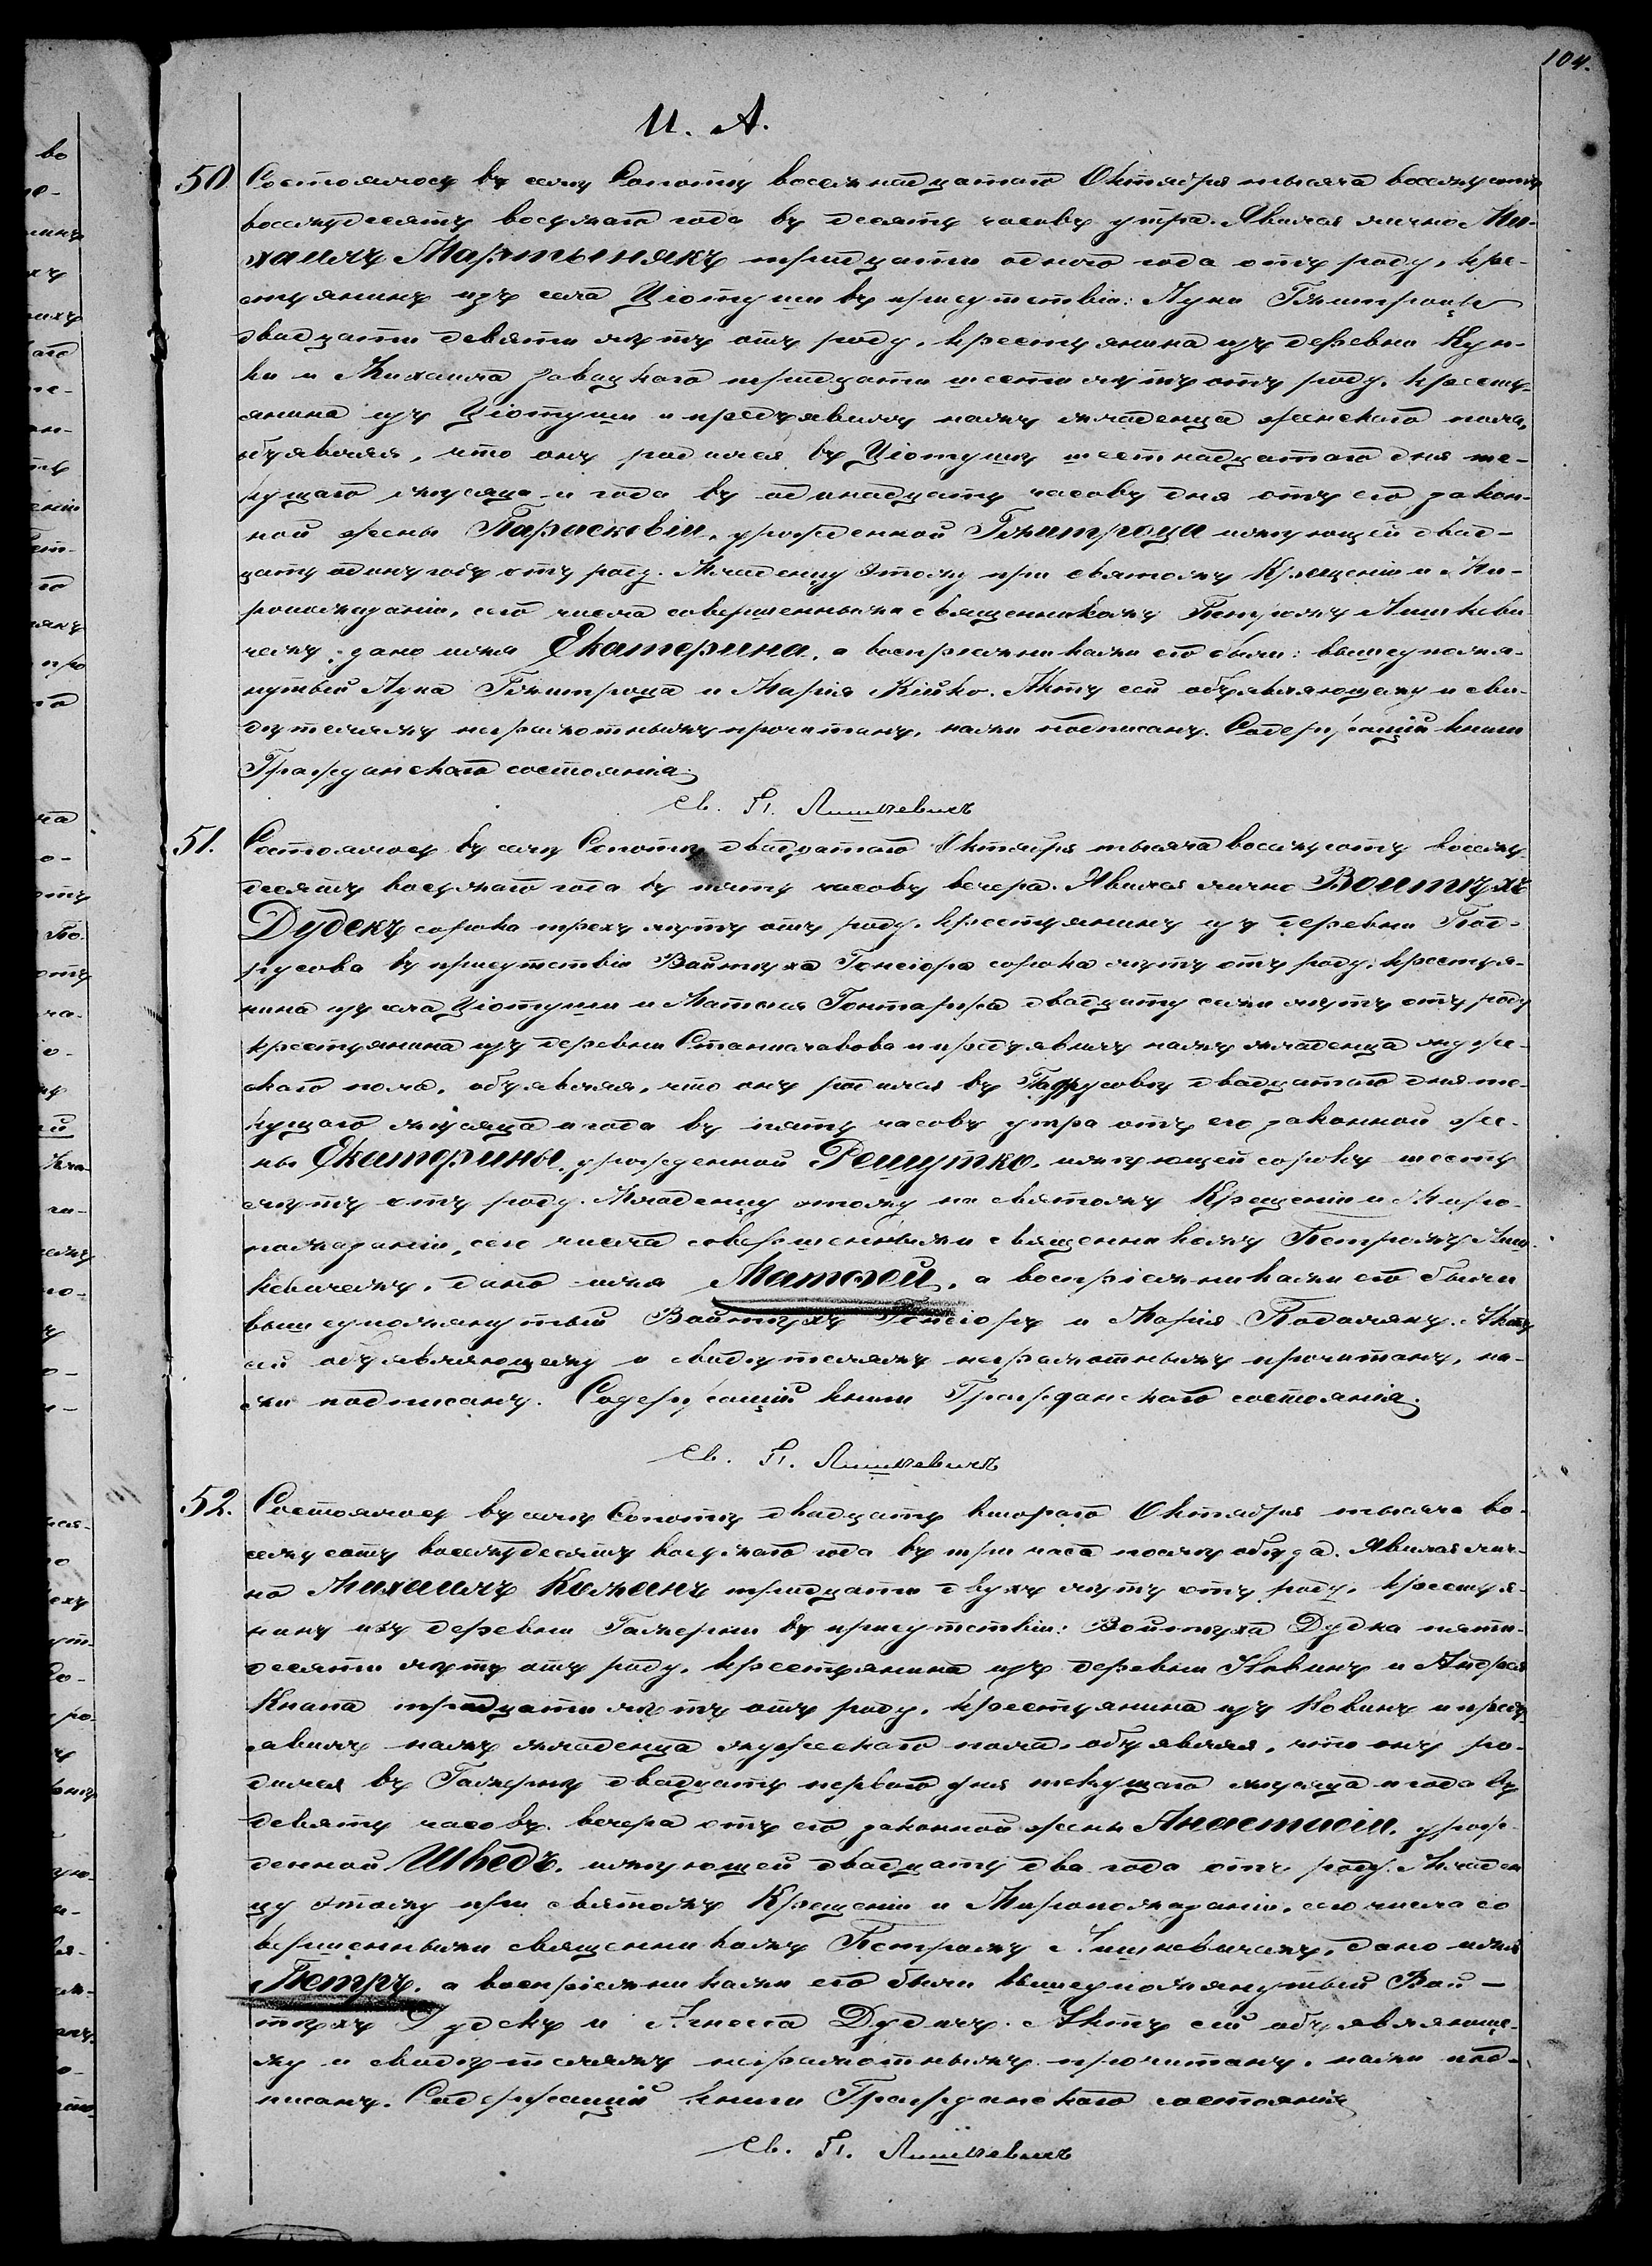 104.
И. А.
50 Состоялось въ селѣ Сопотѣ восемнадцатаго Октября тысяча восемьсотъ
восемьдесятъ восьмаго года въ десять часовъ утра. Явился лично Ми-
хаилъ Мартынякъ тридцати одного года отъ роду, кре-
стьянинъ изъ села Ціотуши въ присутствіи: Луки Гмитроцы
двадцати девяти лѣтъ отъ роду, крестьянина изъ деревни Кун-
ки и Михаила Завацкого тридцати шести лѣтъ отъ роду, кресть-
янина изъ Ціотуши и предъявилъ намъ младенца женскаго пола,
объявляя, что онъ родился въ Ціотушѣ шестнадцатаго дня те-
кущаго мѣсяца и года въ одинадцать часовъ дня отъ его закон-
ной жены Парасковіи, урожденной Гмитроца имѣющей двад-
цать одинъ годъ отъ роду. Младенцу этому при святомъ Крещеніи и Ми-
ропомазаніи, сего числа совершенными священникомъ Петромъ Лишкеви-
чемъ, дано имя Екатерина, а воспріемниками его были: вышеупомя-
нутый Лука Гмитроца и Марія Кійко. Актъ сей объявляющему и сви-
дѣтелямъ неграмотнымъ прочитанъ, нами подписанъ. Содержащій книги
Гражданскаго состоянія.
Св. П. Лишкевичъ
51. Состоялось въ селѣ Сопотѣ двадцатаго Октября тысяча восемьсотъ восемь-
десятъ восьмаго года въ пять часовъ вечера. Явился лично Войтѣхъ
Дудекъ сорока трехъ лѣтъ отъ роду, крестьянинъ изъ деревни Под-
русова въ присутствіи Войтѣха Гонсіора сорока лѣтъ отъ роду, крестья-
нина изъ села Ціотуши и Матвея Гонтаржа двадцать семи лѣтъ отъ роду
крестьянина изъ деревни Станиславова и предъявилъ намъ младенца муже-
скаго пола, объявляя, что онъ родился въ Подрусовѣ двадцатаго дня те-
кущаго мѣсяца и года въ пять часовъ утра отъ его законной же-
ны Екатерины, урожденной Решутко, имѣющей сорокъ шесть
лѣтъ отъ роду. Младенцу этому на святомъ Крещеніи и Миро-
помазаніи, сего числа совершенными священникомъ Петромъ Лиш-
кевичемъ, дано имя Матвей, а воспріемниками его были
вышеупомянутый Войтѣхъ Гонсіоръ и Марія Подолякъ. Актъ
сей объявляющему и свидѣтелямъ неграмотнымъ прочитанъ, на-
ми подписанъ. Содержащій книги Гражданскаго состоянія.
Св. П. Лишкевичъ
52. Состоялось въ селѣ Сопотѣ двадцать втораго Октября тысяча во-
семьсотъ восемьдесятъ восьмаго года въ три часа послѣ обѣда. Явился лич-
но Михаилъ Кимакъ тридцати двухъ лѣтъ отъ роду, крестья-
нинъ изъ деревни Гамерни въ присутствіи: Войтѣха Дудка пяти-
десяти лѣтъ отъ роду, крестьянина изъ деревни Новинъ и Андрея
Кнапа тридцати лѣтъ отъ роду, крестьянина изъ Новинъ и предъ-
явилъ намъ младенца мужескаго пола, объявляя, что онъ ро-
дился въ Гамернѣ двадцать перваго дня текущаго мѣсяца и года въ
девять часовъ вечера отъ его законной жены Анастасіи, урож-
денной Шведъ, имѣющей двадцать два года отъ роду. Младен
цу этому при святомъ Крещеніи и Миропомазаніи, сего числа со
вершенными священникомъ Петромъ Лишкевичемъ, дано имя
Петръ, а воспріемниками его были вышеупомянутый Вой-
тѣхъ Дудекъ и Агнеса Дудичъ. Актъ сей объявляюще-
му и свидѣтелямъ неграмотнымъ прочитанъ, нами под-
писанъ. Содержащій книги Гражданскаго состоянія
Св. П. Лишкевичъ